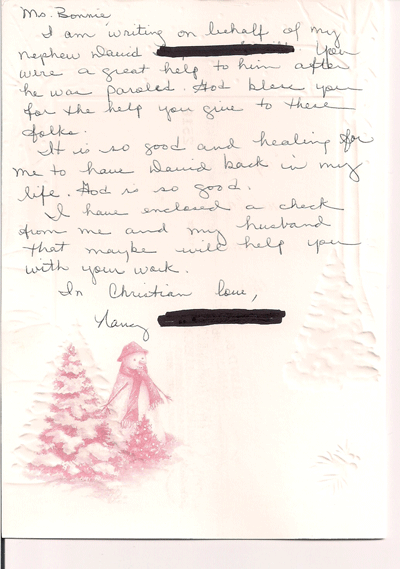 Ms. Bonnie
I am writing on behalf of my
nephew David You
were a great help to him after
he was paroled. God bless you
for the help you give to these
folks.
It is so good and healing for
me to have David back in my
life. God is so good.
I have enclosed a check
from me and my husband
that maybe will help you
with your work.
In Christian love,
Nancy